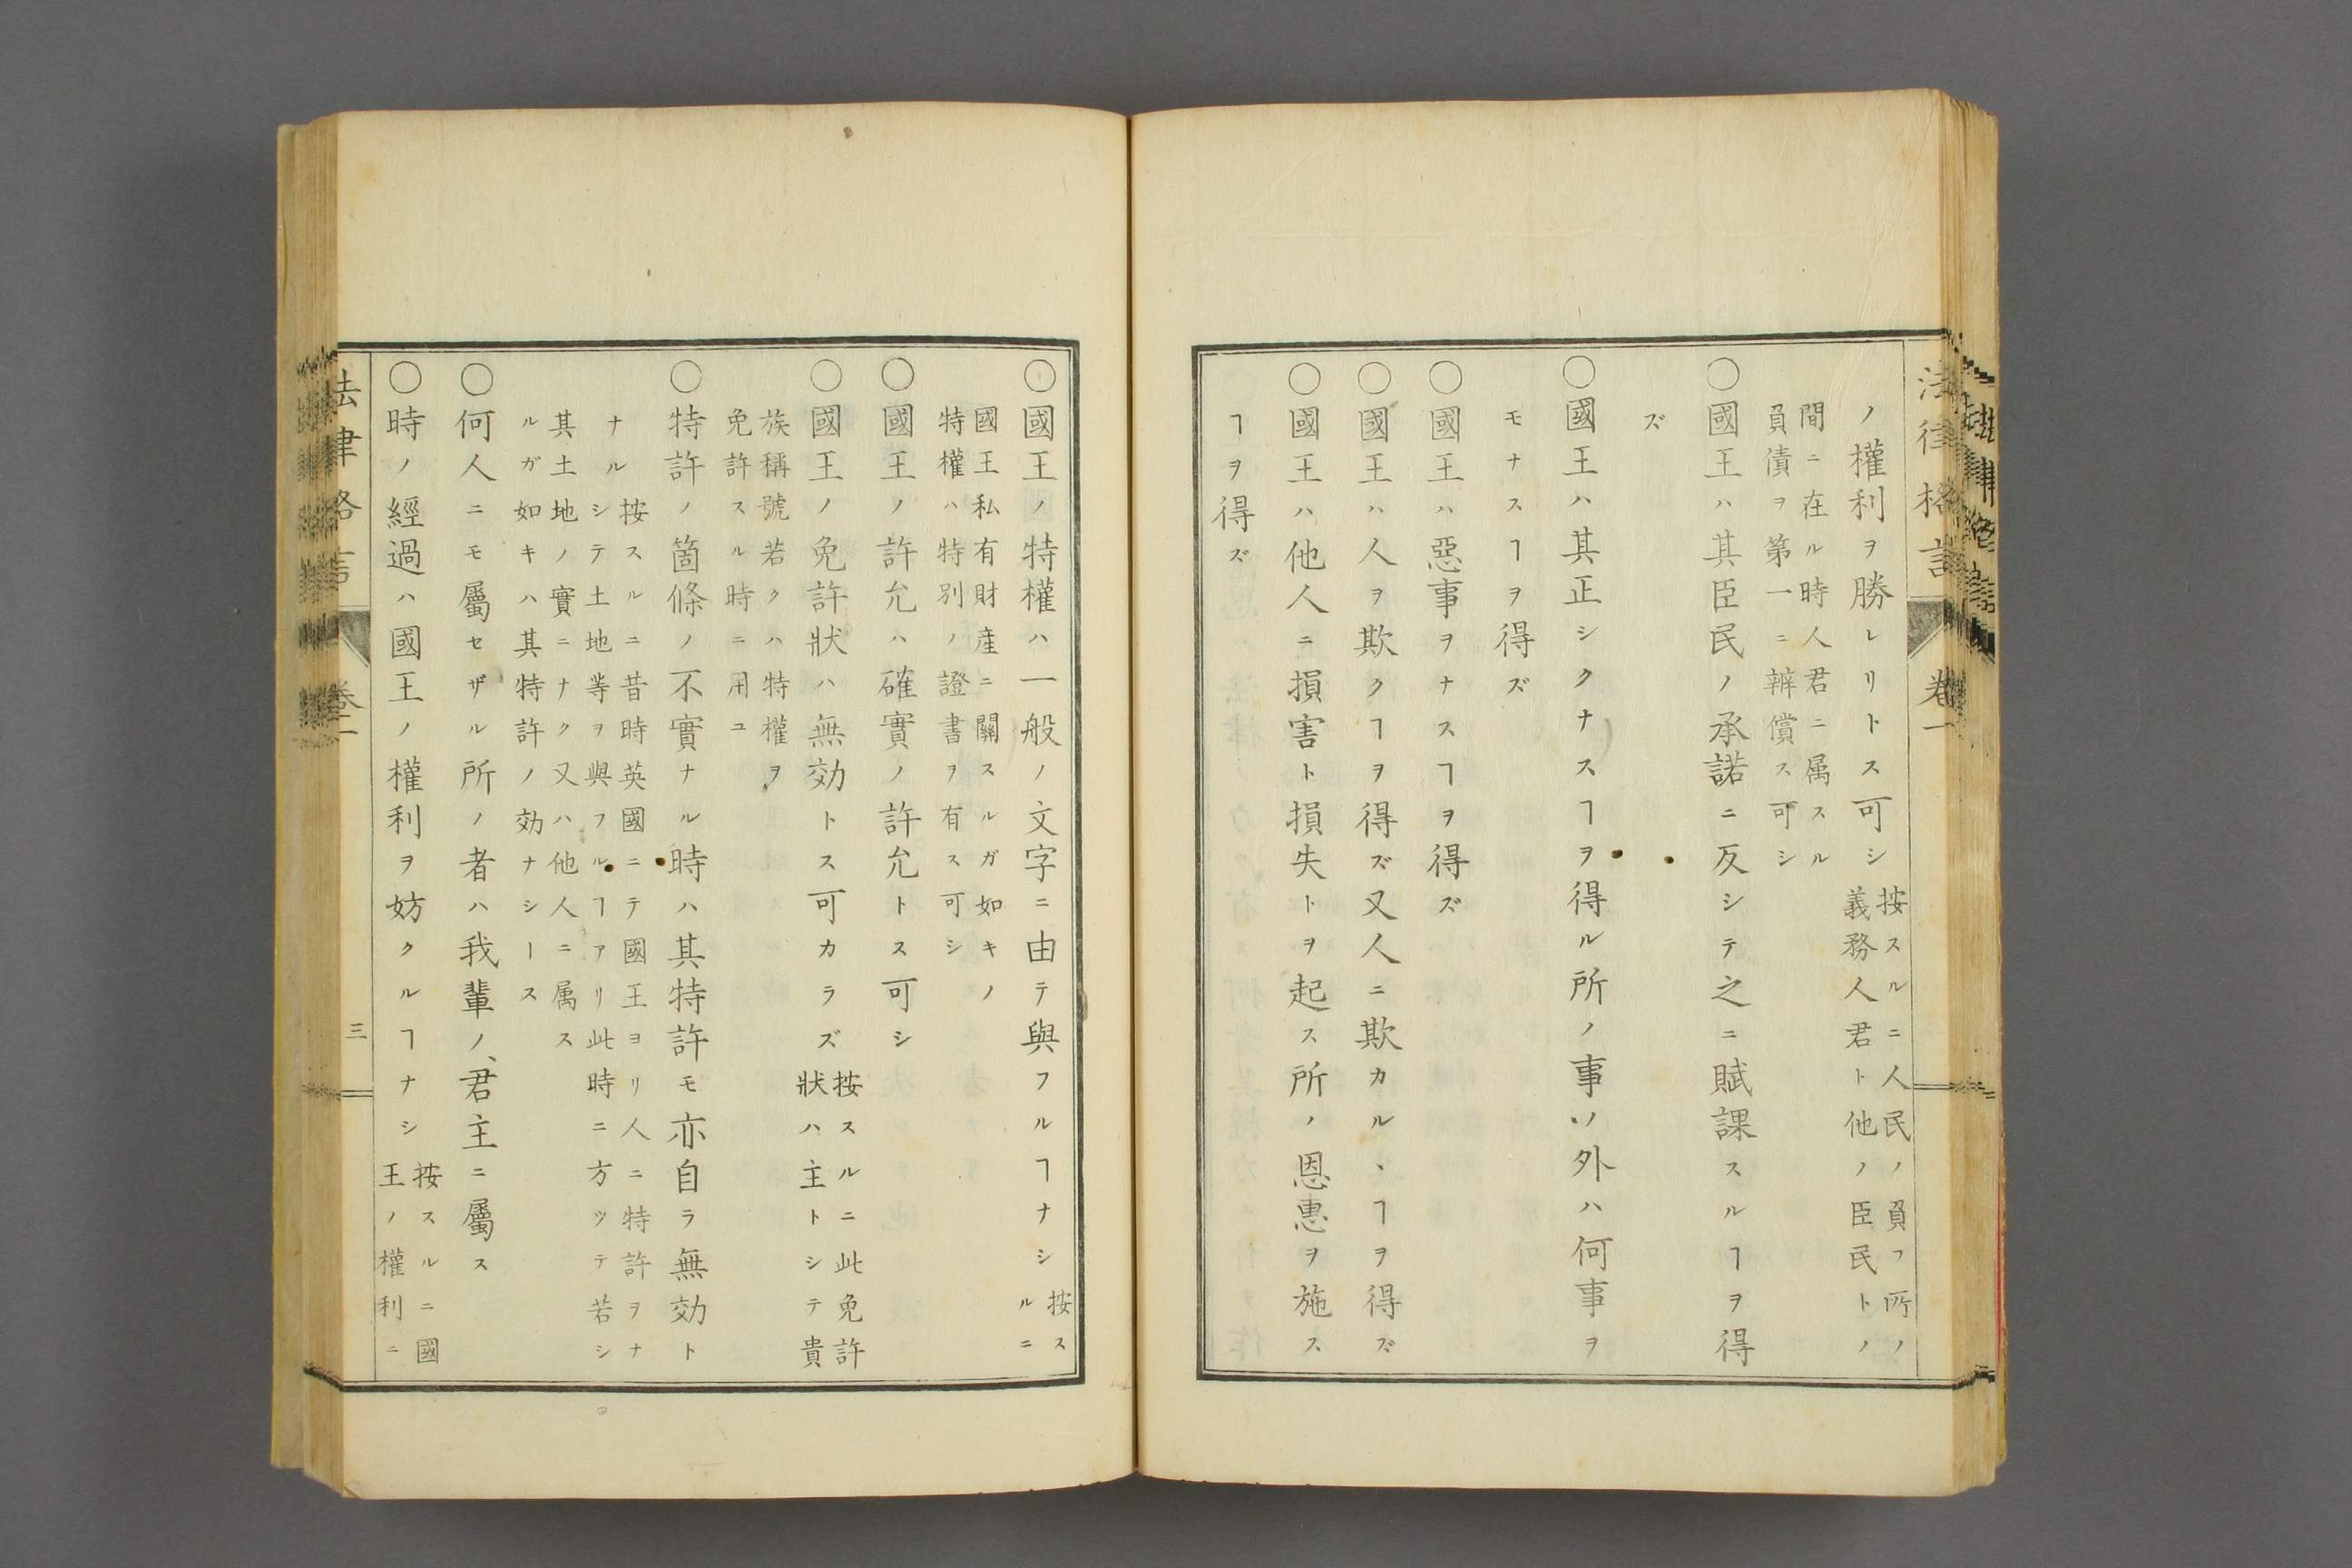 法律格言
卷一
ノ權利ヲ勝レリトス可シ
按スルニ人民ノ負フ所ノ
義務人君ト他ノ臣民トノ
間ニ在ル時人君ニ属スル
負債ヲ第一ニ辨償ス可シ
〇國王ハ其臣民ノ承諾ニ反シテ之ニ賦課スルヿヲ得
ズ
〇國王ハ其正シクナスヿヲ得ル所ノ事ソ外ハ何事ヲ
モナスヿヲ得ズ
〇國王ハ惡事ヲナスヿヲ得ズ
〇國王ハ人ヲ欺クヿヲ得ズ又人ニ欺カルヽヿヲ得ズ
〇國王ハ他人ニ損害ト損失トヲ起ス所ノ恩惠ヲ施ス
ヿヲ得ズ
〇國王ノ特權ハ一般ノ文字ニ由テ與フルヿナシ
按ス
ルニ
國王私有財産ニ關スルガ如キノ
特權ハ特別ノ證書ヲ有ス可シ
〇國王ノ許允ハ確實ノ許允トス可シ
〇國王ノ免許狀ハ無効トス可カラズ
按スルニ此免許
狀ハ主トシテ貴
族稱號若クハ特權ヲ
免許スル時ニ用ユ
〇特許ノ箇條ノ不實ナル時ハ其特許モ亦自ラ無効ト
ナル
按スルニ昔時英國ニテ國王ヨリ人ニ特許ヲナ
シテ土地等ヲ與フルヿアリ此時ニ方ツテ若シ
其土地ノ實ニナク又ハ他人ニ属ス
ルガ如キハ其特許ノ効ナシース
〇何人ニモ屬セザル所ノ者ハ我輩ノ、君主ニ屬ス
〇時ノ經過ハ國王ノ權利ヲ妨クルヿナシ
按スルニ國
王ノ權利ニ
法律格言
卷一
三